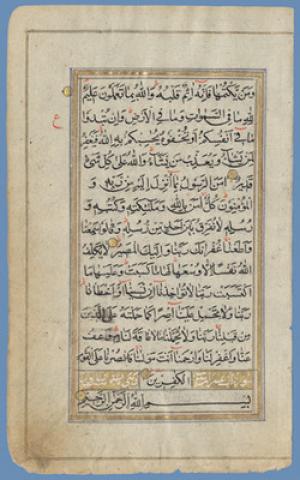 وَمَنْ يَكْتُمْهَا فَاِنَّهُ اٰثِمٌ قَلْبُهُ وَاللّٰهُ بِمَا تَعْمَلُونَ عَلِيمٌ
لِلّٰهِ مَا فِي السَّمٰوَاتِ وَمَا فِي الْاَرْضِ وَاِنْ تُبْدُوا
مَا فِي اَنْفُسِكُمْ اَوْ تُخْفُوهُ يُحَاسِبْكُمْ بِهِ اللّٰهُ فَيَغْفِرُ
لِمَنْ يَشَاءُ وَيُعَذِّبُ مَنْ يَشَاءُ وَاللّٰهُ عَلٰى كُلِّ شَيْءٍ
قَدِيرٌ اٰمَنَ الرَّسُولُ بِمَا اُنْزِلَ اِلَيْهِ مِنْ رَبِّهِ وَ
الْمُؤْمِنُونَ كُلٌّ اٰمَنَ بِاللّٰهِ وَمَلٰئِكَتِهِ وَكُتُبِهِ وَ
رُسُلِهِ لَا نُفَرِّقُ بَيْنَ اَحَدٍ مِنْ رُسُلِهِ وَقَالُوا سَمِعْنَا
وَاَطَعْنَا غُفْرَانَكَ رَبَّنَا وَاِلَيْكَ الْمَصِيرُ لَا يُكَلِّفُ
اللّٰهُ نَفْسًا اِلَّا وُسْعَهَا لَهَا مَا كَسَبَتْ وَعَلَيْهَا مَا
اكْتَسَبَتْ رَبَّنَا لَا تُؤَاخِذْنَا اِنْ نَسِينَا اَوْ اَخْطَأْنَا
رَبَّنَا وَلَا تَحْمِلْ عَلَيْنَا اِصْرًا كَمَا حَمَلْتَهُ عَلَى الَّذِينَ
مِنْ قَبْلِنَا رَبَّنَا وَلَا تُحَمِّلْنَا مَا لَا طَاقَةَ لَنَا بِهِ وَاعْفُ
عَنَّا وَاغْفِرْ لَنَا وَارْحَمْنَا اَنْتَ مَوْلٰنَا فَانْصُرْنَا عَلَى الْقَوْمِ
الْكٰفِرِينَ
بِسْمِ اللّٰهِ الرَّحْمٰنِ الرَّحِيمِ
ع